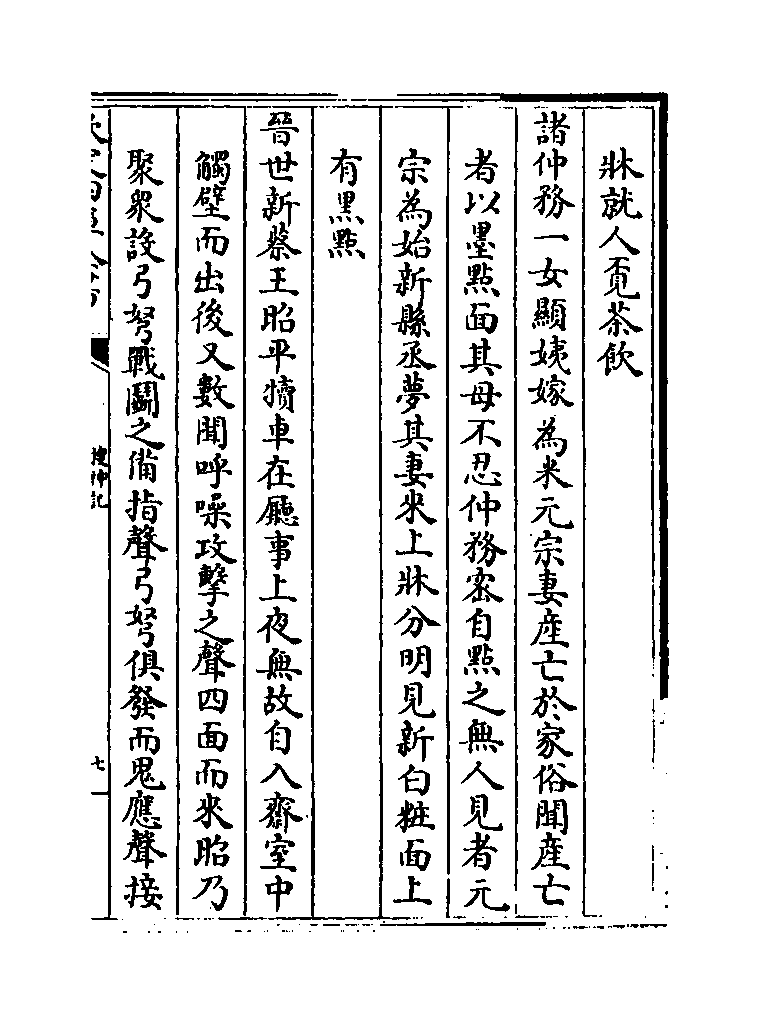 牀就人覓茶飲
諸仲務一女顯姨嫁為米元宗妻産亡於家俗聞産亡
者以墨點面其母不忍仲務密自點之無人見者元
宗為始新縣丞夢其妻來上牀分明見新白粧面上
有黒點
晉世新蔡王昭平犢車在廳事上夜無故自入齋室中
觸壁而出後又數聞呼噪攻擊之聲四面而來昭乃
聚衆設弓弩戰鬭之備指聲弓弩俱發而鬼應聲接
搜神記
七